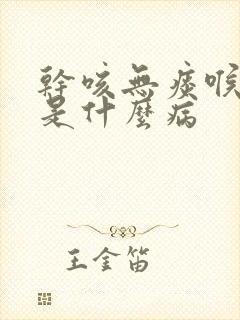 幹咳無痰喉
是什麼病
王金笛